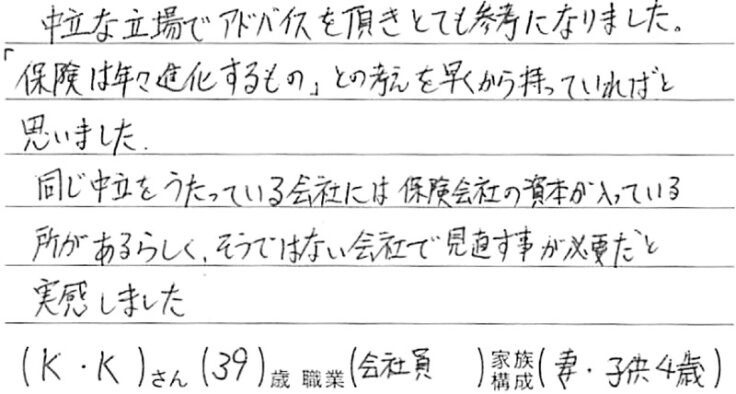 中立な立場でアドバイスを頂きとても参考になりました。
「保険は年々進化するもの」との考えを早くから持っていればと
思いました.
同じ中立をうたっている会社には保険会社の資本が入っている
所があるらしく、そうではない会社で見直す事が必要だと
実感しました
(K・K)さん(39)歳 職業(会社員 )家族構成(妻・子供4歳)